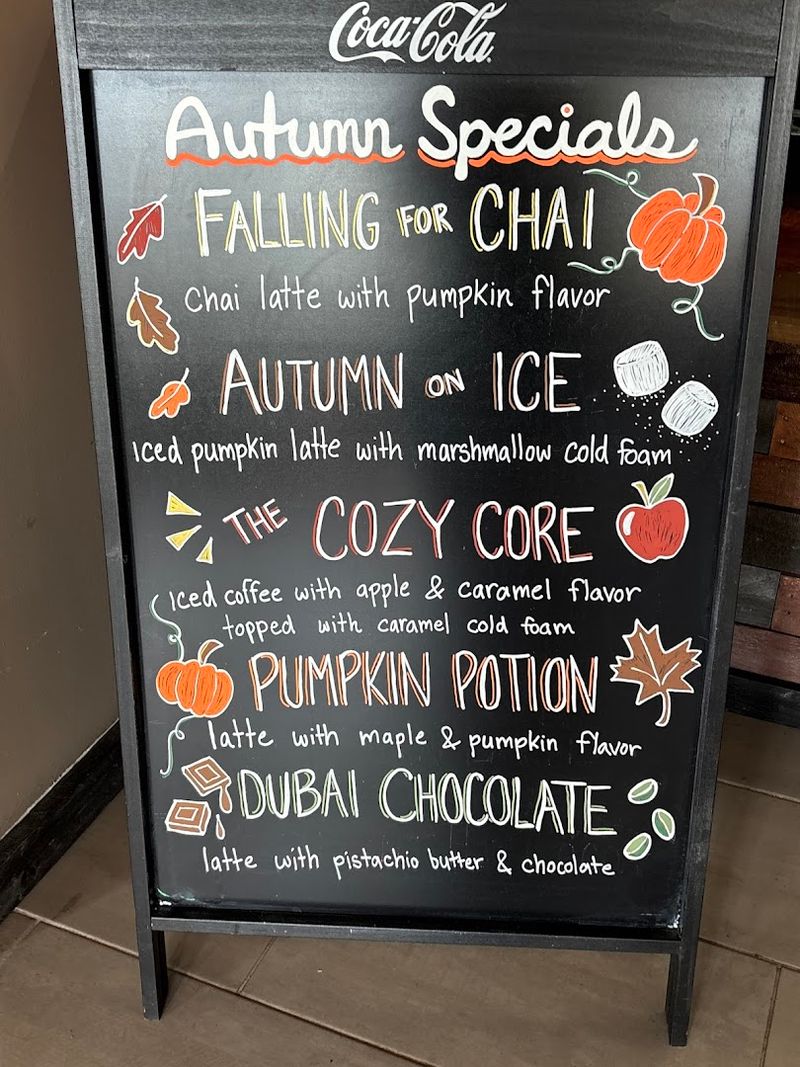 Coca-Cola
Autumn Specials
FALLING FOR CHAI
Chai latte with pumpkin flavor
AUTUMN ON ICE
Iced pumpkin latte with marshmallow cold foam
THE COZY CORE
Iced coffee with apple & caramel flavor
topped with caramel cold foam
PUMPKIN POTION
latte with maple & pumpkin flavor
DUBAI CHOCOLATE
latte with pistachio butter & chocolate